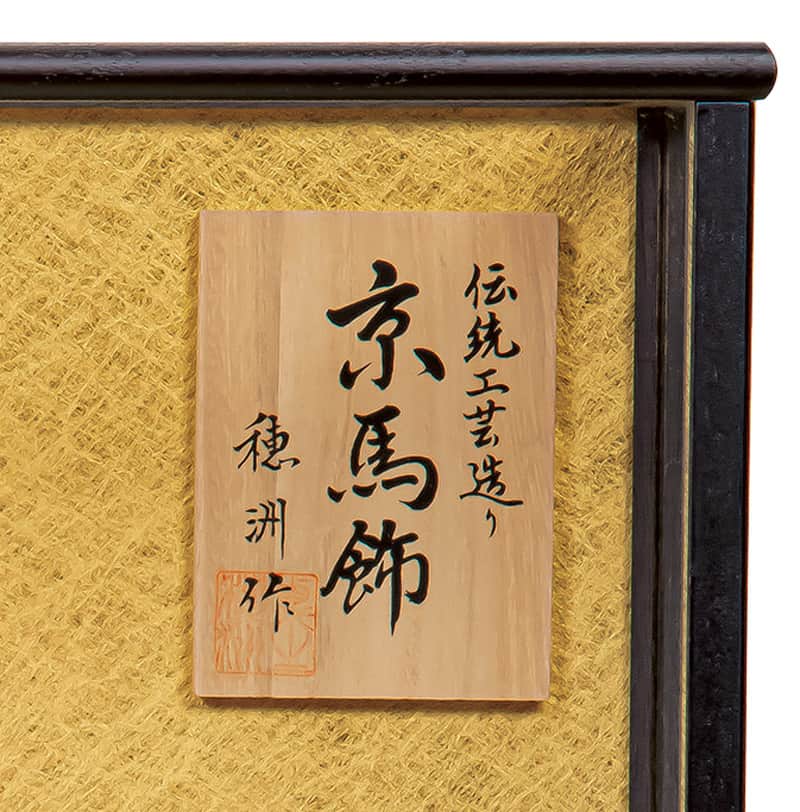 伝統工芸造り
京馬飾
穂洲作